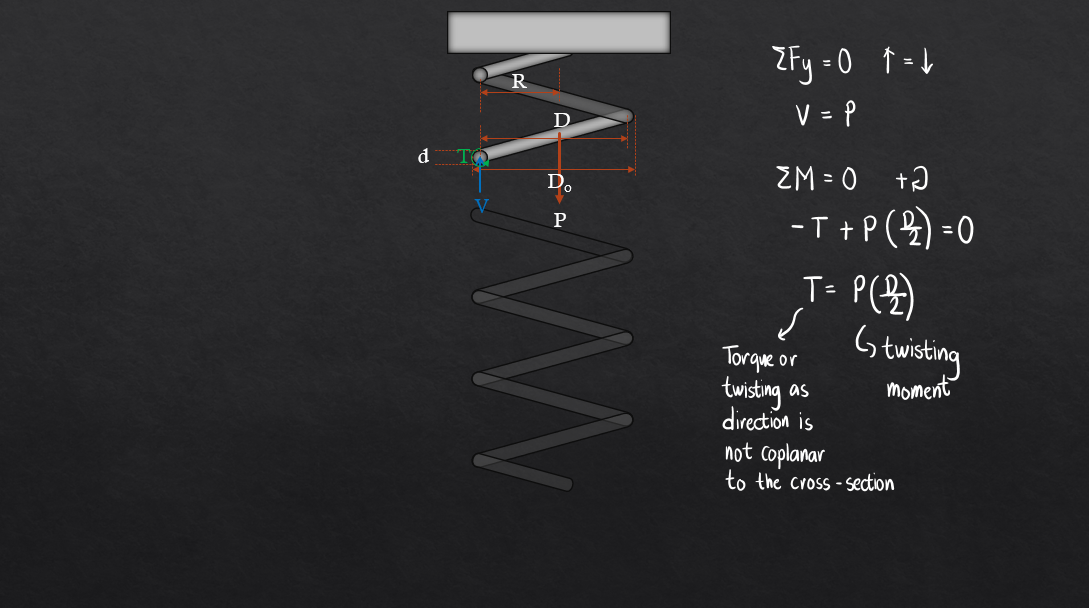 R
D
d
T
D₀
V
P
ΣFy = 0 ↑ = ↓
V = P
ΣM = 0 +↻
- T + P (D/2) = 0
T = P (D/2)
Torque or
twisting as
direction is
not coplanar
to the cross-section
↳ twisting
moment